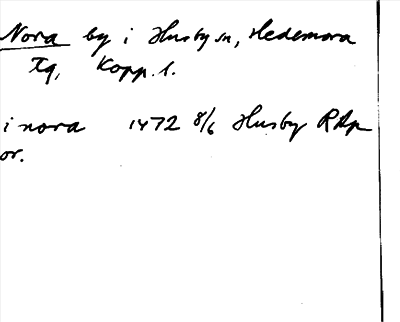 Nora by i Husby sn, Hedemora
Tg, Kopp. l.
i nora 1472 8/6 Husby RAp
or.